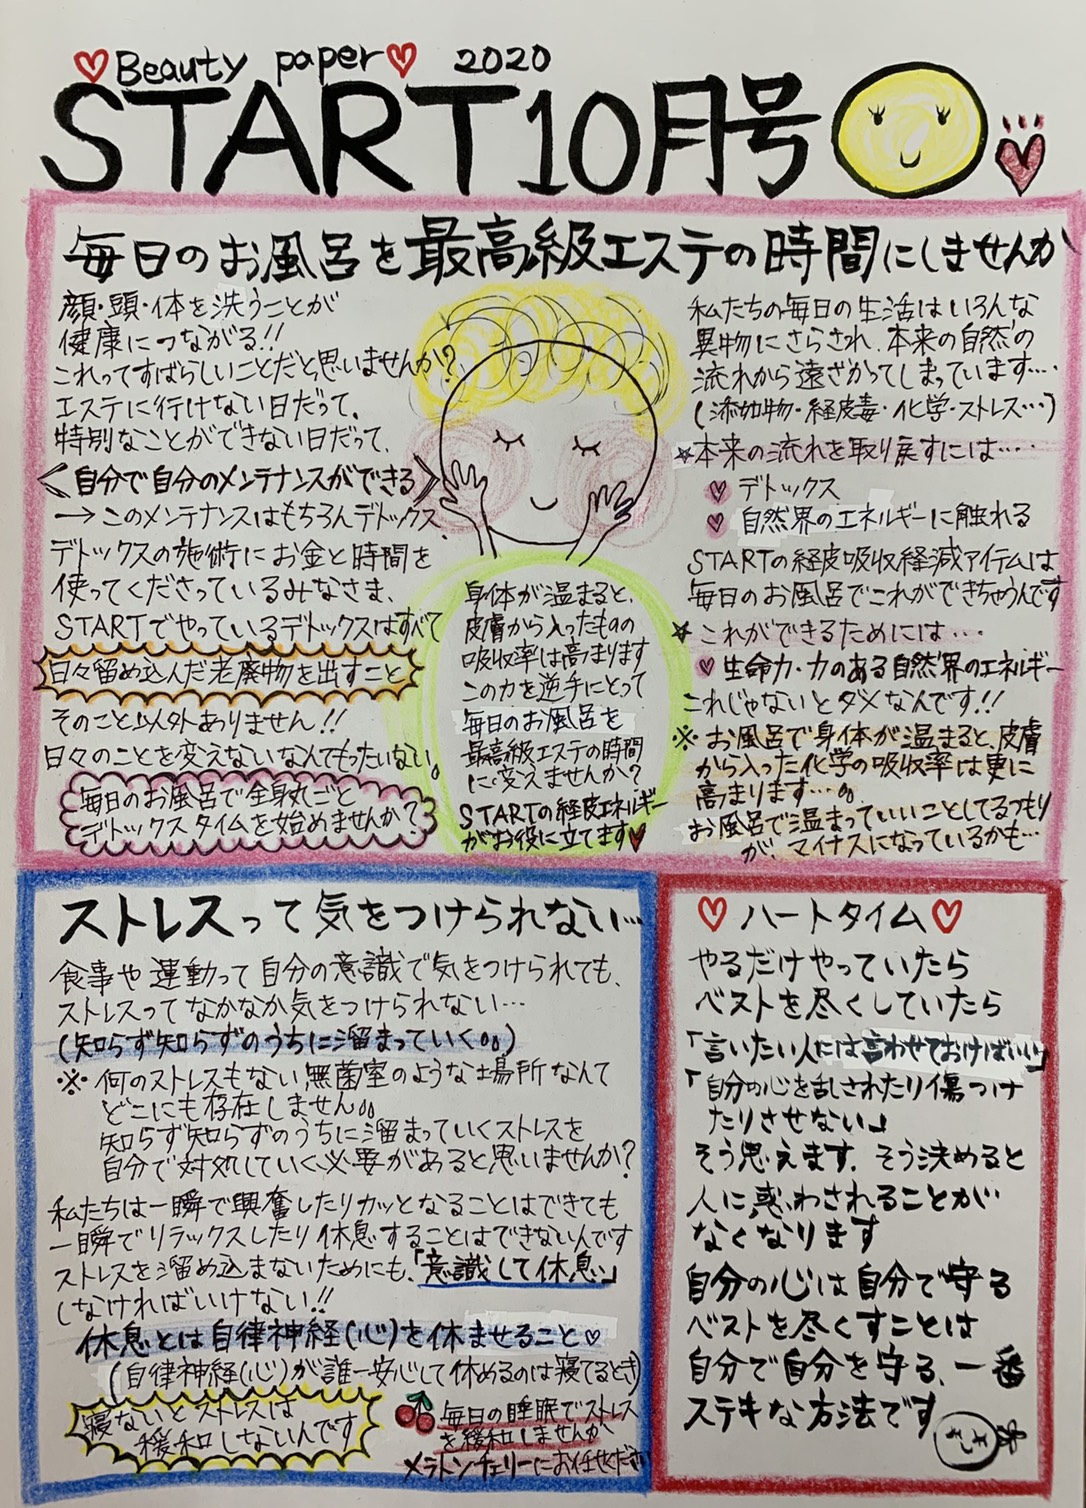 ♥Beauty paper♥ 2020
START10月号
毎日のお風呂を最高級エステの時間にしませんか
顔・頭・体を洗うことが
健康につながる!!
これってすばらしいことだと思いませんか?
エステに行けない日だって、
特別なことができない日だって、
《自分で自分のメンテナンスができる》
→このメンテナンスはもちろんデトックス
デトックスの施術にお金と時間を
使ってくださっているみなさま、
STARTでやっているデトックスはすべて
日々留め込んだ老廃物を出すこと
そのこと以外ありません!!
日々のことを変えないなんてもったいない。
毎日のお風呂で全身丸ごと
デトックスタイムを始めませんか?
身体が温まると、
皮膚から入ったものの
吸収率は高まります
この力を逆手にとって
毎日のお風呂を
最高級エステの時間
に変えませんか?
STARTの経皮エネルギー
がお役に立てます♥
私たちの毎日の生活はいろんな
異物にさらされ、本来の自然の
流れから遠ざかってしまっています….
(添加物・経皮毒・化学・ストレス…)
☆本来の流れを取り戻すには…
♥デトックス
♥自然界のエネルギーに触れる
STARTの経皮吸収経減アイテムは
毎日のお風呂でこれができちゃうんです
☆これができるためには…
♥生命力・力のある自然界のエネルギー
これじゃないとダメなんです!!
※お風呂で身体が温まると、皮膚
から入った化学の吸収率は更に
高まります…。。
お風呂で温まっていいことしてるつもり
が、マイナスになっているかも…
ストレスって気をつけられない…
食事や運動って自分の意識で気をつけられても、
ストレスってなかなか気をつけられない…
(知らず知らずのうちに溜まっていく。。)
※何のストレスもない無菌室のような場所なんて
どこにも存在しません。。
知らず知らずのうちに溜まっていくストレスを
自分で対処していく必要があると思いませんか?
私たちは一瞬で興奮したりカッとなることはできても
一瞬でリラックスしたり休息することはできないんです
ストレスを溜め込まないためにも、「意識して休息」
しなければいけない!!
休息とは自律神経(心)を休ませること♡
(自律神経(心)が誰一安心して休めるのは寝てるとき)
寝ないとストレスは
緩和しないんです
毎日の睡眠でストレス
を緩和しませんか
メラトンチェリーにお任せください
♡ハートタイム♡
やるだけやっていたら
ベストを尽くしていたら
「言いたい人には言わせておけばいい」
「自分の心を乱されたり傷つけ
たりさせない」
そう思えます、そう決めると
人に惑わされることが
なくなります
自分の心は自分で守る
ベストを尽くすことは
自分で自分を守る、一番
ステキな方法です